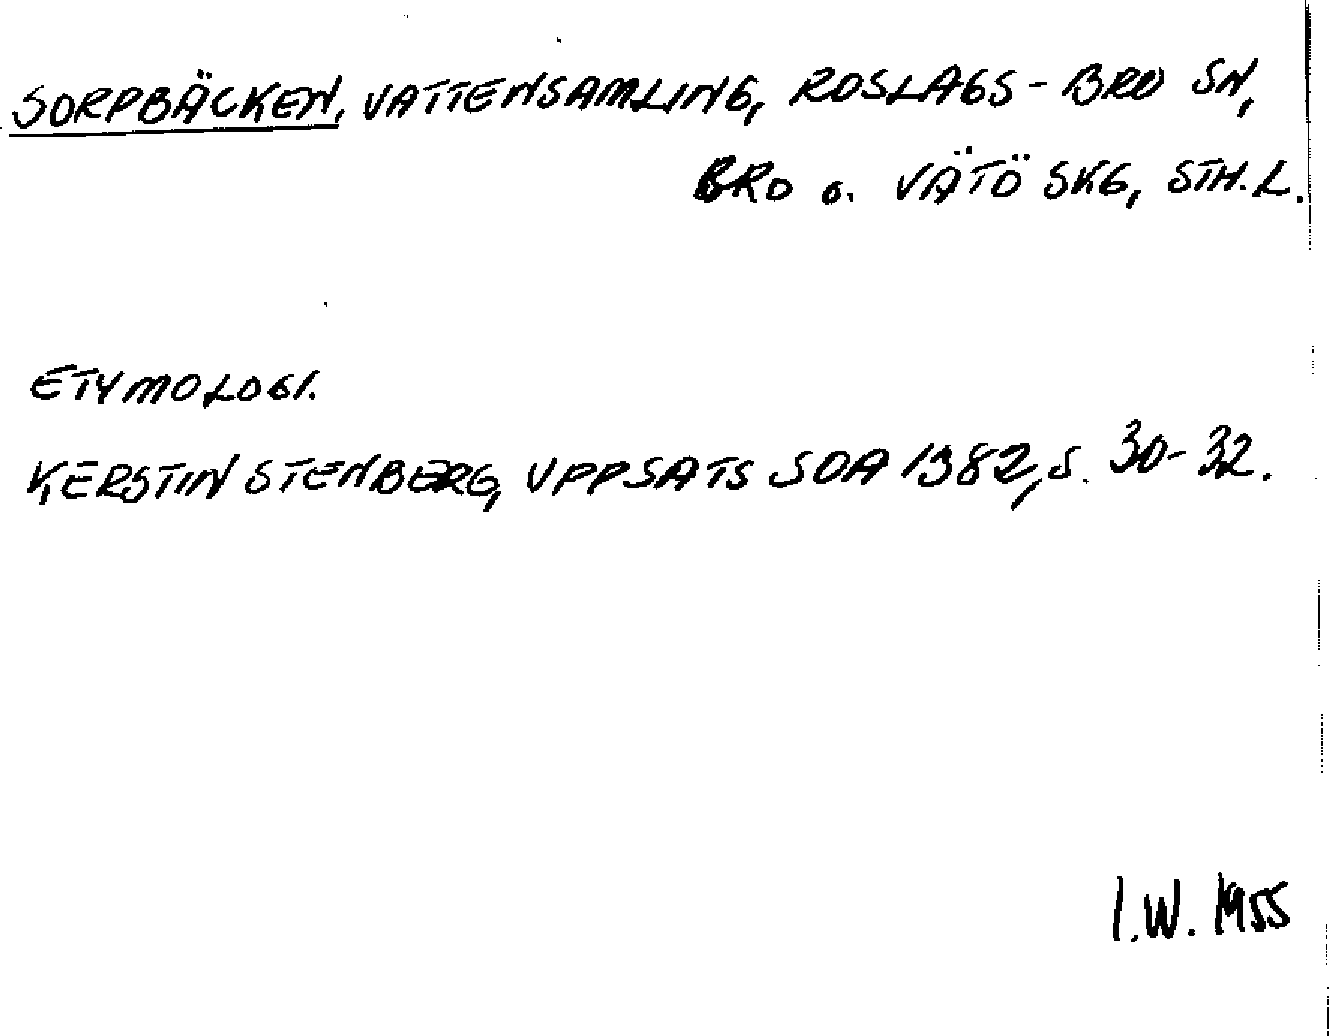 SORPBÄCKEN, VATTENSAMLING, ROSLAGS-BRO SN,
BRO o. VÄTÖ SKG, STH.L.
ETYMOLOGI.
KERSTIN STENBERG, UPPSATS SOA 1382, S. 30-32.
I.W. 1955